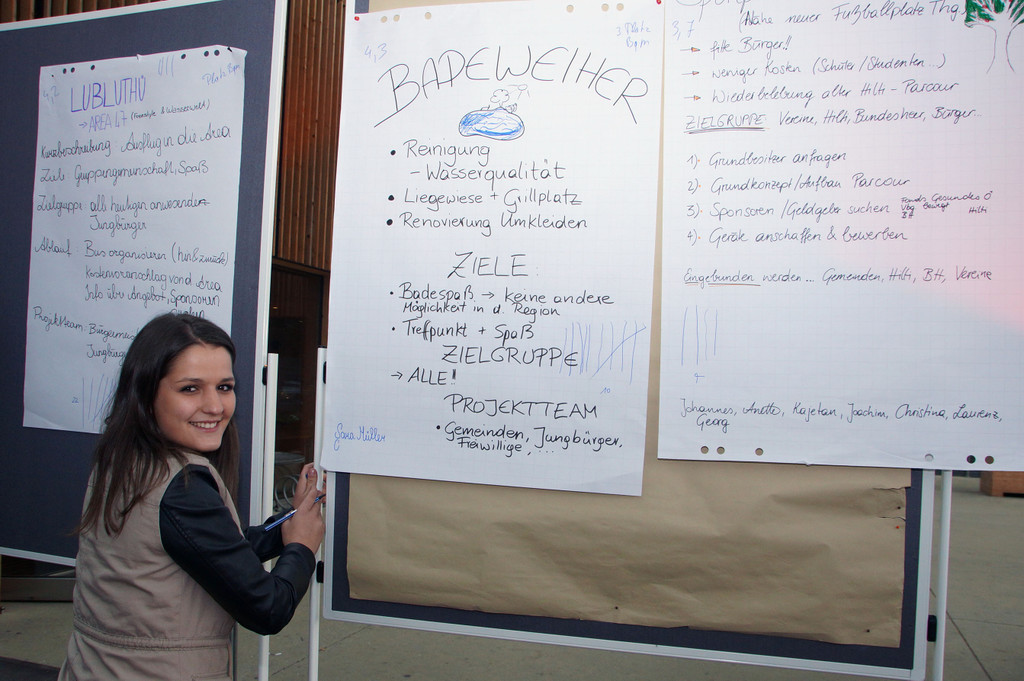 4,2
Platz Bgm
LUBLUTHÜ
→ AREA 47 (Freestyle & Wasserwelt)
Kurzbeschreibung: Ausflug in die Area
Ziele: Gruppengemeinschaft, Spaß
Zielgruppe: alle heutigen anwesenden
Jungbürger
Ablauf: Bus organisieren (hin & zurück)
Kostenvoranschlag von d. Area
Info über Angebot, Sponsoren
Projektteam: Bürgermei
Jungbürg
4,3
3. Platz
Bgm
BADEWEIHER
• Reinigung
- Wasserqualität
• Liegewiese + Grillplatz
• Renovierung Umkleiden
ZIELE:
• Badespaß → keine andere
Möglichkeit in d. Region
• Treffpunkt + Spaß
ZIELGRUPPE
→ ALLE!
10
PROJEKTTEAM
• Gemeinden, Jungbürger,
Freiwillige, ...
Sara Müller
3,7
(Nähe neuer Fußballplatz Thg.
→ fitte Bürger!!
→ weniger Kosten (Schüler/Studenten...)
→ Wiederbelebung alter Hilti-Parcour
ZIELGRUPPE Vereine, Hilti, Bundesheer, Bürger...
1) Grundbesitzer anfragen
2) Grundkonzept/Aufbau Parcour
3) Sponsoren/Geldgeber suchen Fonds Gesundes Ö
Vbg bewegt Hilti
BH
4) Geräte anschaffen & bewerben
Eingebunden werden... Gemeinden, Hilti, BH, Vereine
4
Johannes, Anette, Kajetan, Joachim, Christina, Laurenz,
Georg